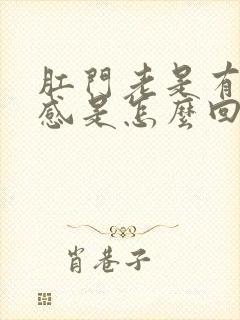 肛門老是有
感是怎麼回
肖巷子